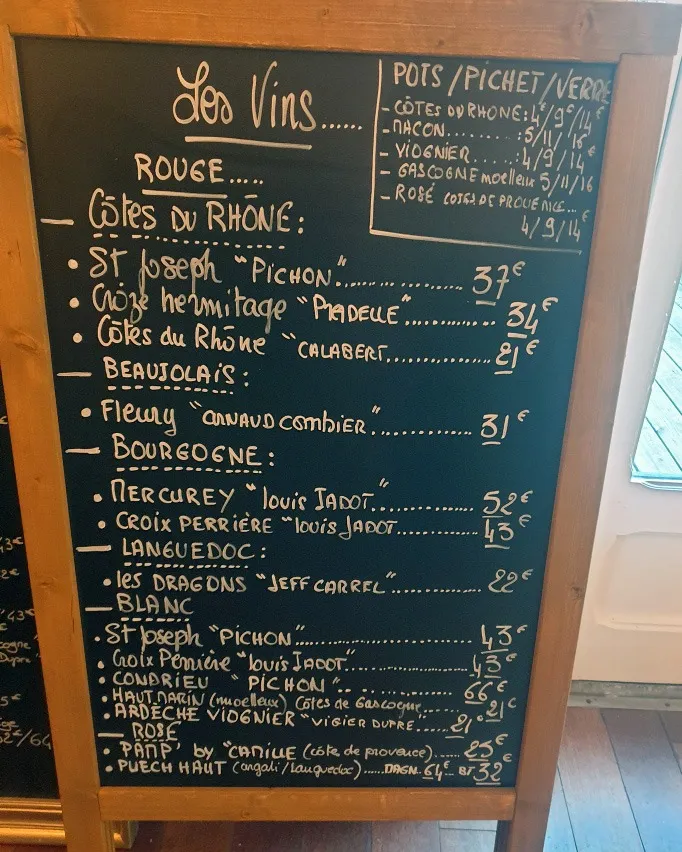 Les Vins......
ROUGE.....
— CÔTES DU RHÔNE:
• ST Joseph "PICHON"................ 37€
• Crôze hermitage "PRADELLE".............. 34€
• Côtes du Rhône "CALABERT................ 21€
— BEAUJOLAIS:
• Fleury "ARNAUD Combier"................ 31€
— BOURGOGNE:
• MERCUREY "louis JADOT"............... 52€
• CROIX PERRIÈRE "louis JADOT............ 43€
— LANGUEDOC:
• les DRAGONS "JEFF CARREL"............... 22€
— BLANC
• St Joseph "PICHON"........................ 43€
• Croix Perrière "louis JADOT"................ 43€
• CONDRIEU "PICHON".. .. ............ 66€
• HAUT MARIN (moelleux) Côtes de Gascogne...... 21€
• ARDÈCHE VIOGNIER "VIGIER DUPRÉ"..... 21€
— ROSÉ
• PAMP' by "CAMILLE (côte de provence)...... 25€
• PUECH HAUT (argali/languedoc)......MAGN. 64€ BT 32€
POTS/PICHET/VERRE
- CÔTES DU RHONE: 4€/9€/14€
- MACON.........: 5/11/16€
- VIOGNIER.....: 4/9/14€
- GASCOGNE moelleux 5/11/16
- ROSÉ COTES DE PROVENCE...
4/9/14€